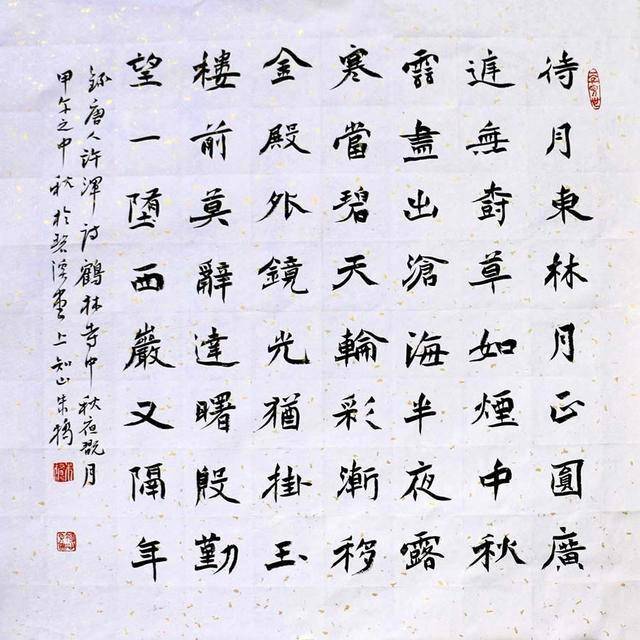 待月東林月正圓廣
庭無樹草如煙中秋
雲盡出滄海半夜露
寒當碧天輪彩漸移
金殿外鏡光猶掛玉
樓前莫辭達曙殷勤
望一墮西巖又隔年
錄唐人許渾詩鶴林寺中秋夜翫月
甲午之中秋於碧溪堂上知山朱